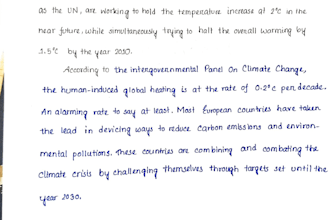 as the UN, are working to hold the temperature increase at 2°C in the
near future, while simultaneously trying to halt the overall warming by
1.5°C by the year 2030.
According to the intergovernmental Panel On Climate Change,
the human-induced global heating is at the rate of 0.2°C per decade.
An alarming rate to say at least. Most European countries have taken
the lead in devicing ways to reduce carbon emissions and environ-
mental pollutions. These countries are combining and combating the
climate crisis by challenging themselves through targets set until the
year 2030.